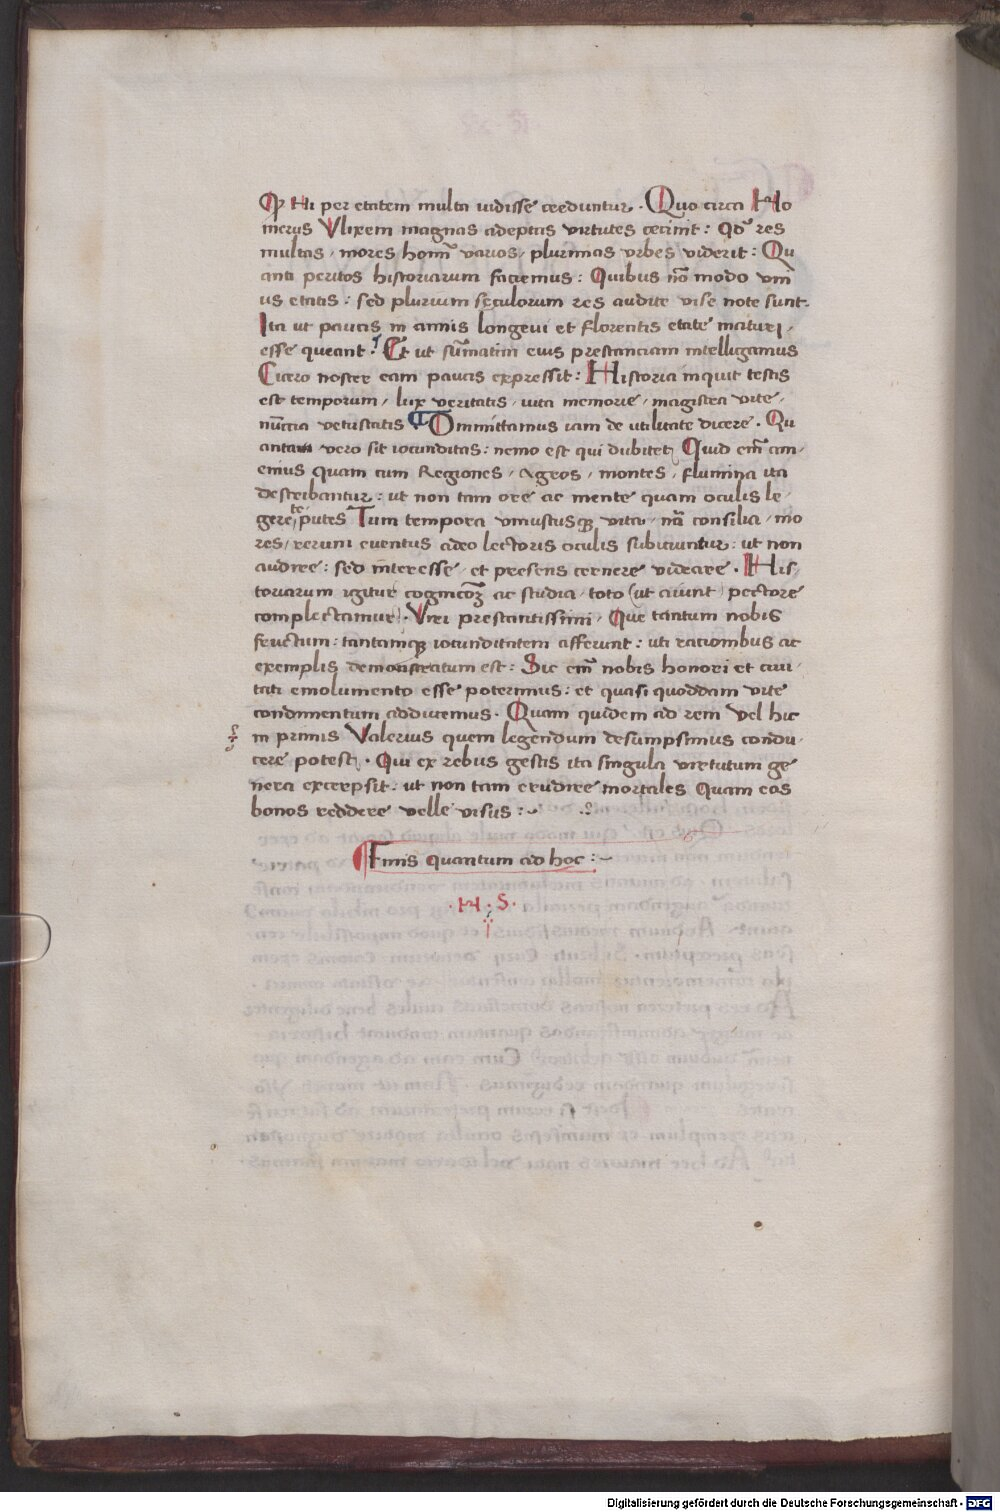 Qꝙ Hi per etatem multa uidisse creduntur. Quo circa Ho
merus Vlixem magnas adeptas virtutes cecinit: Qđ res
multas, mores homi͂ varios, plurimas vrbes viderit: Qu
anti peritos historiarum faciemus: Quibus nō modo vni
us etatis: sed plurium seculorum res audite vise note sunt.
Ita ut paucis in annis longeui et florentis etate maturi,
esse queant. Et ut su͂matim eius prestanciam intelligamus
Cicero noster eam paucis expressit: Historia inquit testis
est temporum, lux veritatis, uita memorie, magistra vite,
nu͂ccia vetustatis Ommittamus iam de utilitate dicere. Qu
antam vero sit iocunditas: nemo est qui dubitet Quid eni͂ am,
enius quam cum Regiones, Agros, montes, flumina ita
describantur: ut non tam ore ac mente quam oculis le,
gere te putes Tum tempora vniuscuiusqꝫ vita, mo
res, rerum euentus adeo lectoris oculis subiciuntur: ut non
audire: sed interesse, et presens cernere videare. His,
toriarum igitur cognicōꝫ ac studia, toto (ut aiunt) pectore
complectamur. Viri prestantissimi, Que tantum nobis
fructum: tantamqꝫ iocunditatem afferunt: uti racionibus ac
exemplis demonstratum est: Sic eni͂ nobis honori et ciui,
tati emolumento esse poterimus: et quasi quoddam vite
condimentum adducemus. Quam quidem ad rem vel hic
in primis Valerius quem legendum desumpsimus condu,
cere potest. Qui ex rebus gestis ita singula virtutum ge
nera excerpsit: ut non tam erudire mortales Quam eos
bonos reddere velle visus:~
Finis quantum ad hoc:~
.H.S.
Digitalisierung gefördert durch die Deutsche Forschungsgemeinschaft - DFG